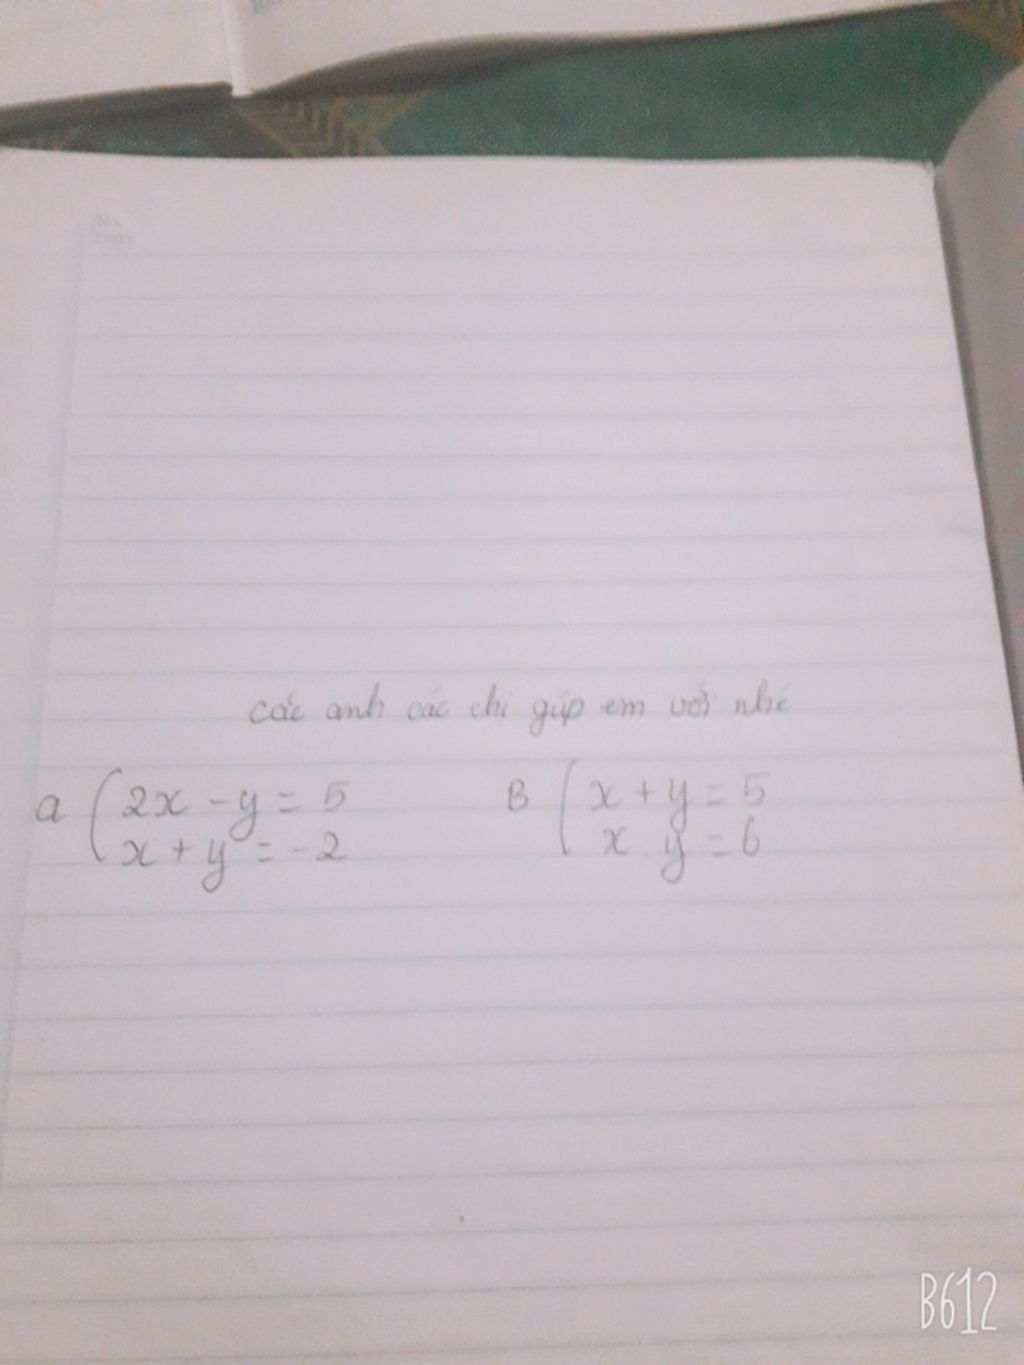 các anh các chị giúp em với nhé
a { 2x - y = 5
x + y = -2
B { x + y = 5
x . y = 6
B612